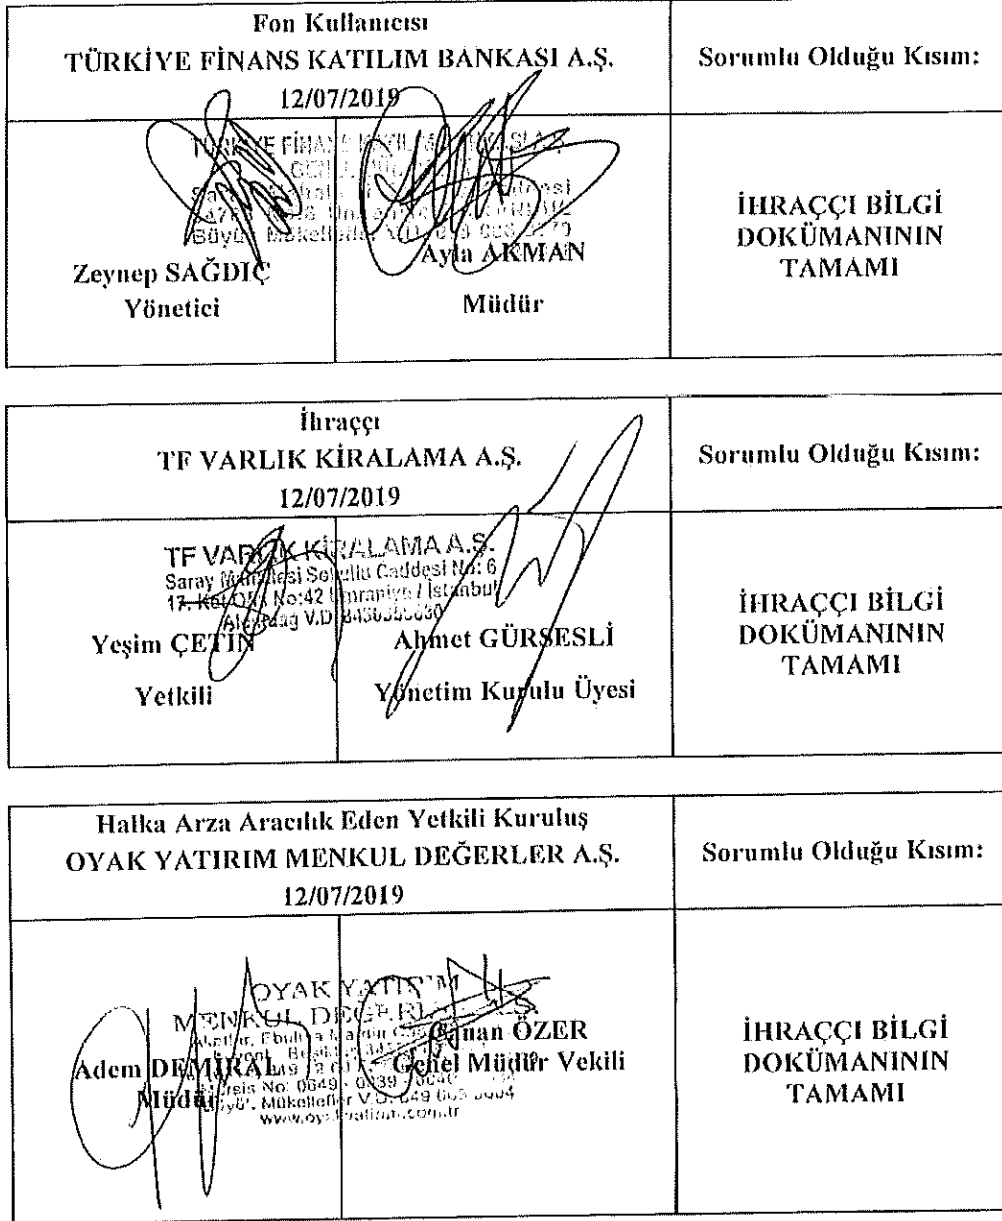 Fon Kullanıcısı
TÜRKİYE FİNANS KATILIM BANKASI A.Ş.
12/07/2019
Sorumlu Olduğu Kısım:
Zeynep SAĞDIÇ
Yönetici
Ayla AKMAN
Müdür
İHRAÇÇI BİLGİ
DOKÜMANININ
TAMAMI
İhraççı
TF VARLIK KİRALAMA A.Ş.
12/07/2019
Sorumlu Olduğu Kısım:
TF VARLIK KİRALAMA A.Ş.
Saray Mahallesi Sokullu Caddesi No: 6
17. Kat No:42 Ümraniye / İstanbul
Yeşim ÇETİN
Yetkili
Ahmet GÜRSESLİ
Yönetim Kurulu Üyesi
İHRAÇÇI BİLGİ
DOKÜMANININ
TAMAMI
Halka Arza Aracılık Eden Yetkili Kuruluş
OYAK YATIRIM MENKUL DEĞERLER A.Ş.
12/07/2019
Sorumlu Olduğu Kısım:
OYAK YATIRIM
MENKUL DEĞERLER A.Ş.
Adem DEMİRAL
Müdür
ÖZER
Genel Müdür Vekili
İHRAÇÇI BİLGİ
DOKÜMANININ
TAMAMI